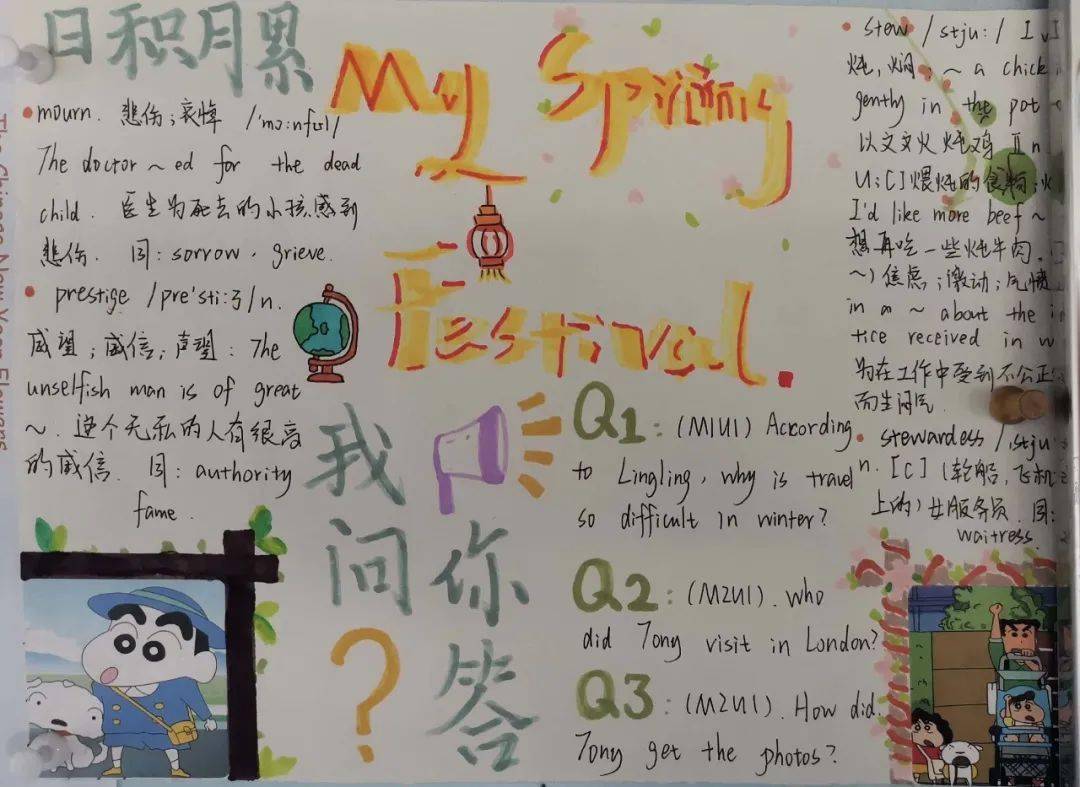 日积月累
My Spring
Festival.
• mourn. 悲伤;哀悼 /'mɔ:nful/
The doctor ~ed for the dead
child. 医生为死去的小孩感到
悲伤. 同: sorrow, grieve.
• prestige /pre'sti:ʒ/n.
威望;威信;声望: The
unselfish man is of great
~. 这个无私的人有很高
的威信. 同: authority
fame.
我问你答?
Q1: (M1U1) According
to Lingling, why is travel
so difficult in winter?
Q2: (M2U1). Who
did Tony visit in London?
Q3: (M2U1). How did
Tony get the photos?
• stew /stju:/ I v
炖,焖; ~ a chick
gently in the pot
以文火炖鸡 II n
U;C]煨炖的食物;
I'd like more beef ~
想再吃一些炖牛肉.
~) 焦虑;激动;气愤
in a ~ about the in
tice received in w
为在工作中受到不公正
而生闷气
• stewardess /ˌstju
n. [C] (轮船,飞机
上的)女服务员. 同:
waitress.
The Chinese New Year Flowers